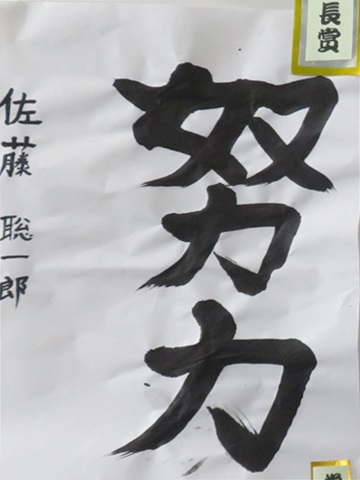 長賞
努力
佐藤聡一郎